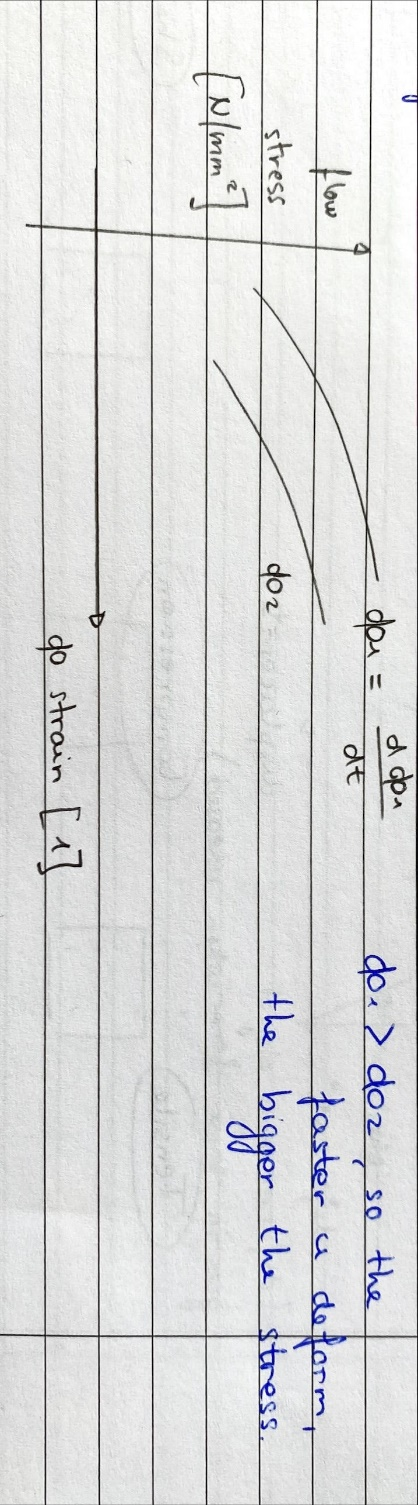 flow
stress
[N/mm²]
φ₁ = dφ₁/dt
φ₂
φ strain [1]
φ₁ > φ₂, so the
faster u deform,
the bigger the stress.